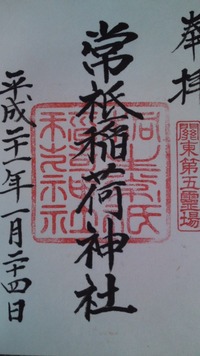 奉拝
關東第五靈場
常祇稲荷神社
平成二十一年一月二十四日